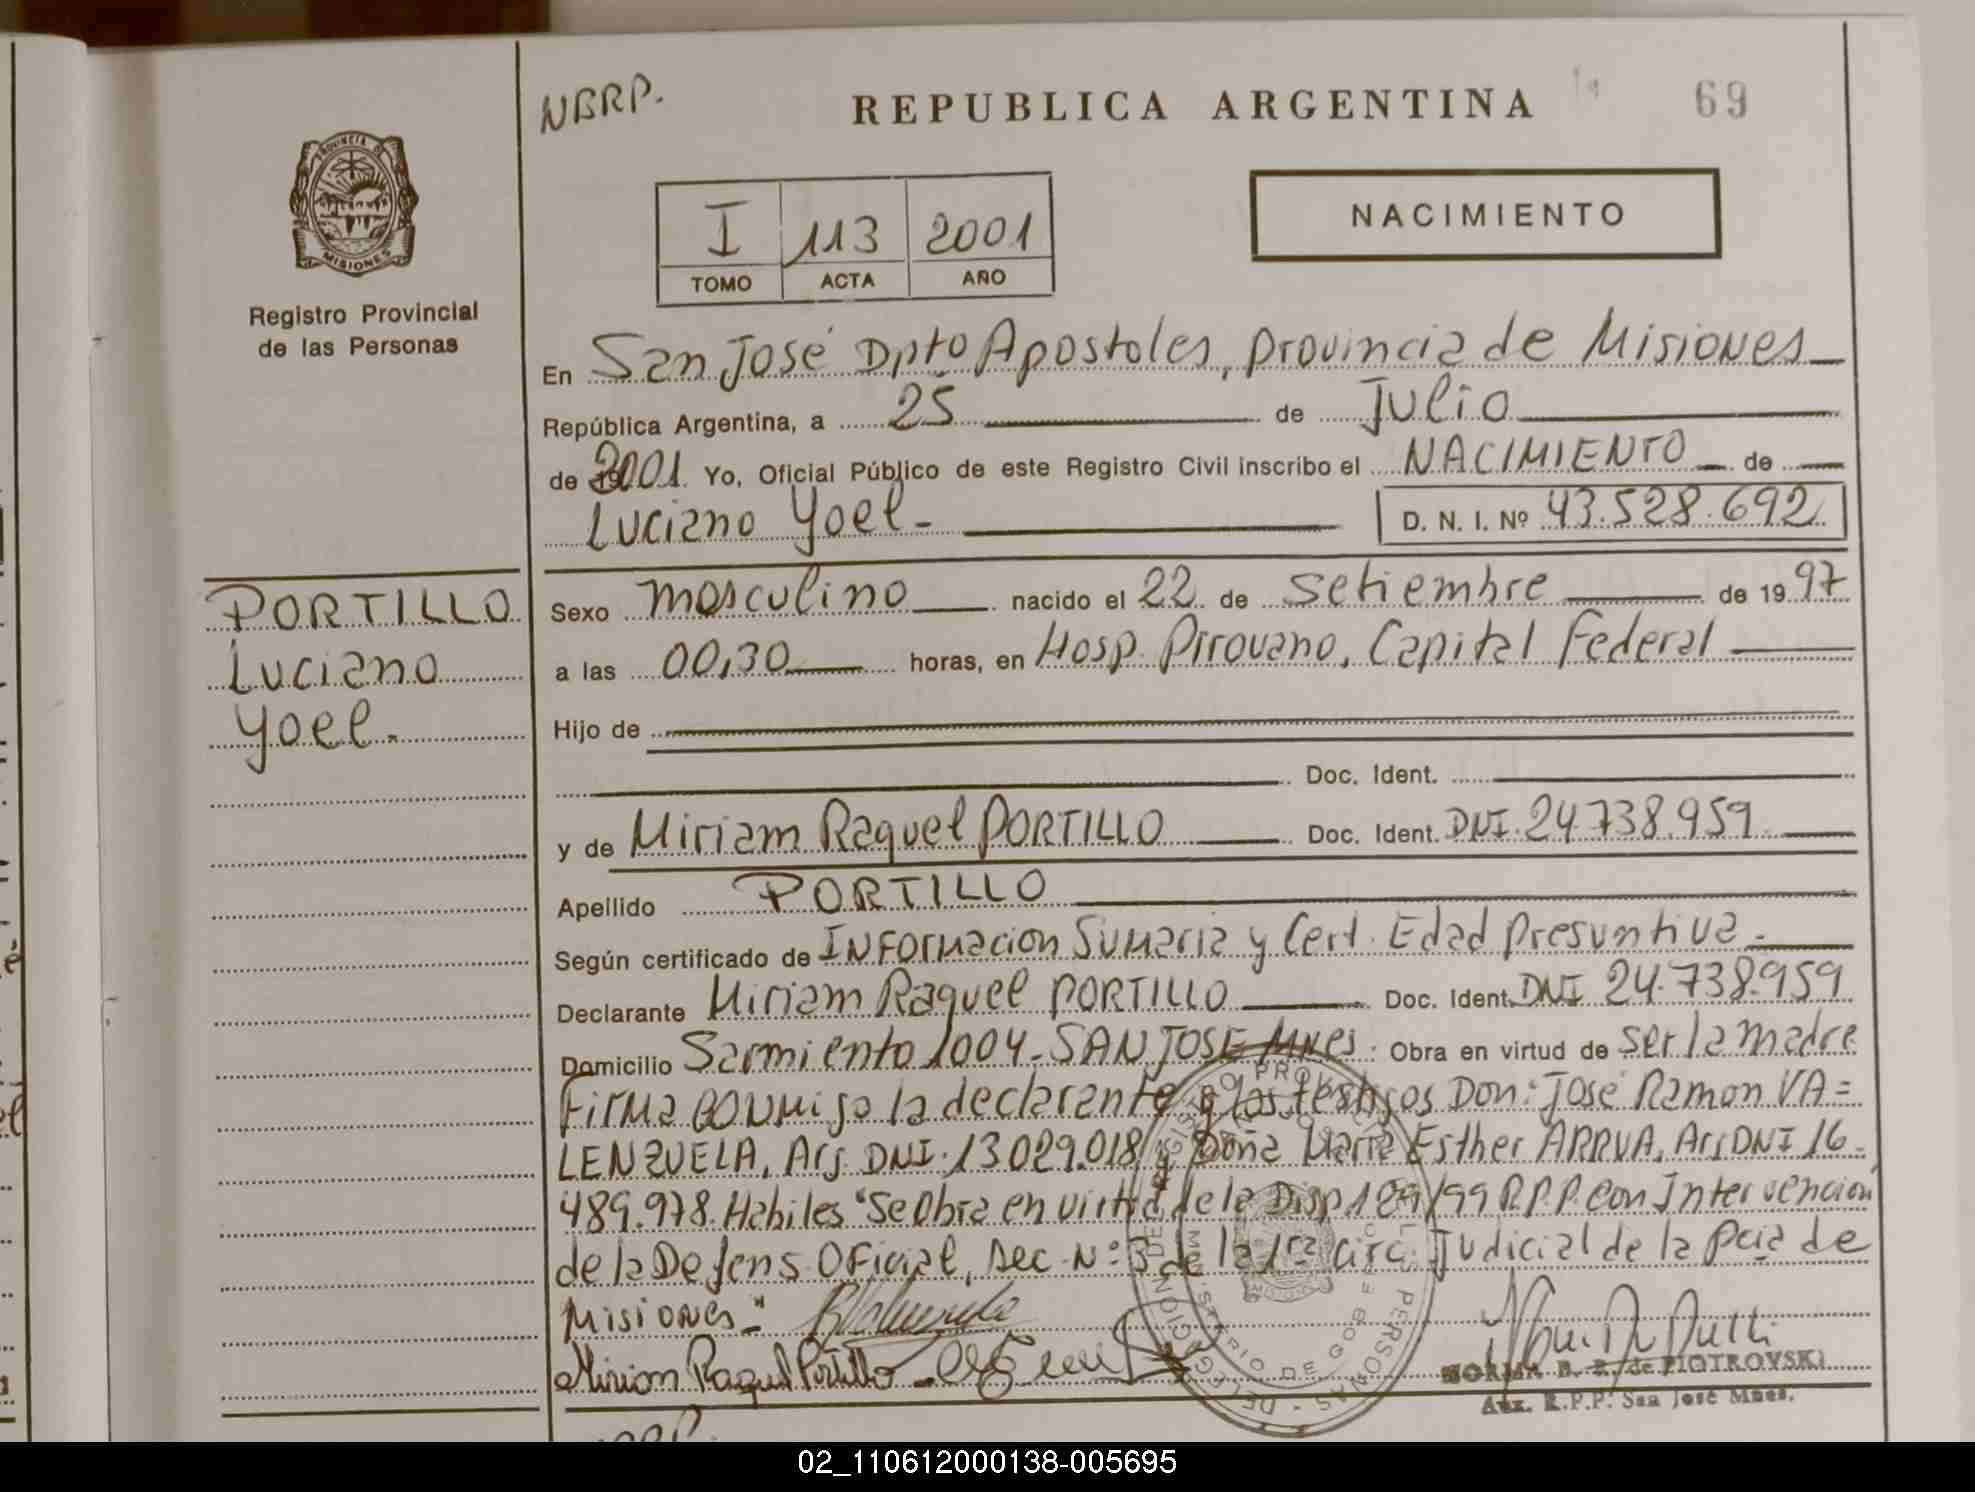 NBRP.
REPUBLICA ARGENTINA
69
PROVINCIA DE
MISIONES
Registro Provincial
de las Personas
I 113 2001
TOMO ACTA AÑO
NACIMIENTO
En San José Dpto Apostoles, provincia de Misiones
República Argentina, a 25 de Julio
de 2001. Yo, Oficial Público de este Registro Civil inscribo el NACIMIENTO de
Luciano Yoel- D. N. I. Nº 43.528.692
PORTILLO
Luciano
Yoel.-
Sexo masculino nacido el 22 de Setiembre de 1997
a las 00,30 horas, en Hosp. Pirovano, Capital Federal
Hijo de
Doc. Ident.
y de Miriam Raquel PORTILLO Doc. Ident. DNI. 24.738.959
Apellido PORTILLO
Según certificado de INFormacion Sumaria y Cert. Edad presuntiva.-
Declarante Miriam Raquel PORTILLO Doc. Ident. DNI 24.738.959
Domicilio Sarmiento 1004- SAN JOSE Mnes. Obra en virtud de ser la madre
Firma conmigo la declarante y los testigos Don: José Ramon VA=
LENZUELA, Arg. DNI. 13.029.018 y Doña Maria Esther ARRUA, Arg DNI 16.
489.978. Habiles "Se Obra en virtud de la Disp. 189/99 R.P.P. con Intervencion
de la Defens. Oficial, Sec. Nº 3 de la 1ra circ. Judicial de la Pcia de
Misiones"-
Miriam Raquel Portillo
NORMA B. R. de PIOTROVSKI
Aux. R.P.P. San José Mnes.
02_110612000138-005695